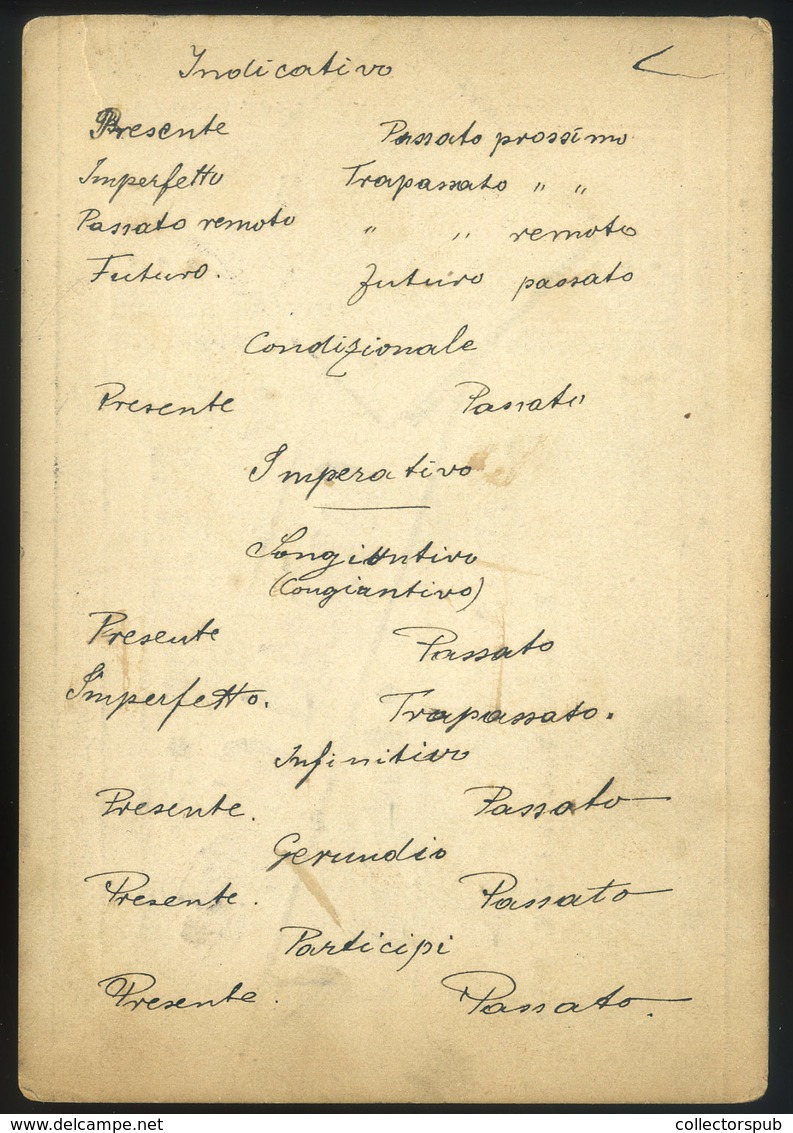 Indicativo
Presente Passato prossimo
Imperfetto Trapassato " "
Passato remoto " " remoto
Futuro. Futuro passato
Condizionale
Presente Passato
Imperativo
Songiuntivo
(Congiantivo)
Presente Passato
Imperfetto. Trapassato.
Infinitivo
Presente. Passato
Gerundio
Presente. Passato
Participi
Presente. Passato.
collectorspub